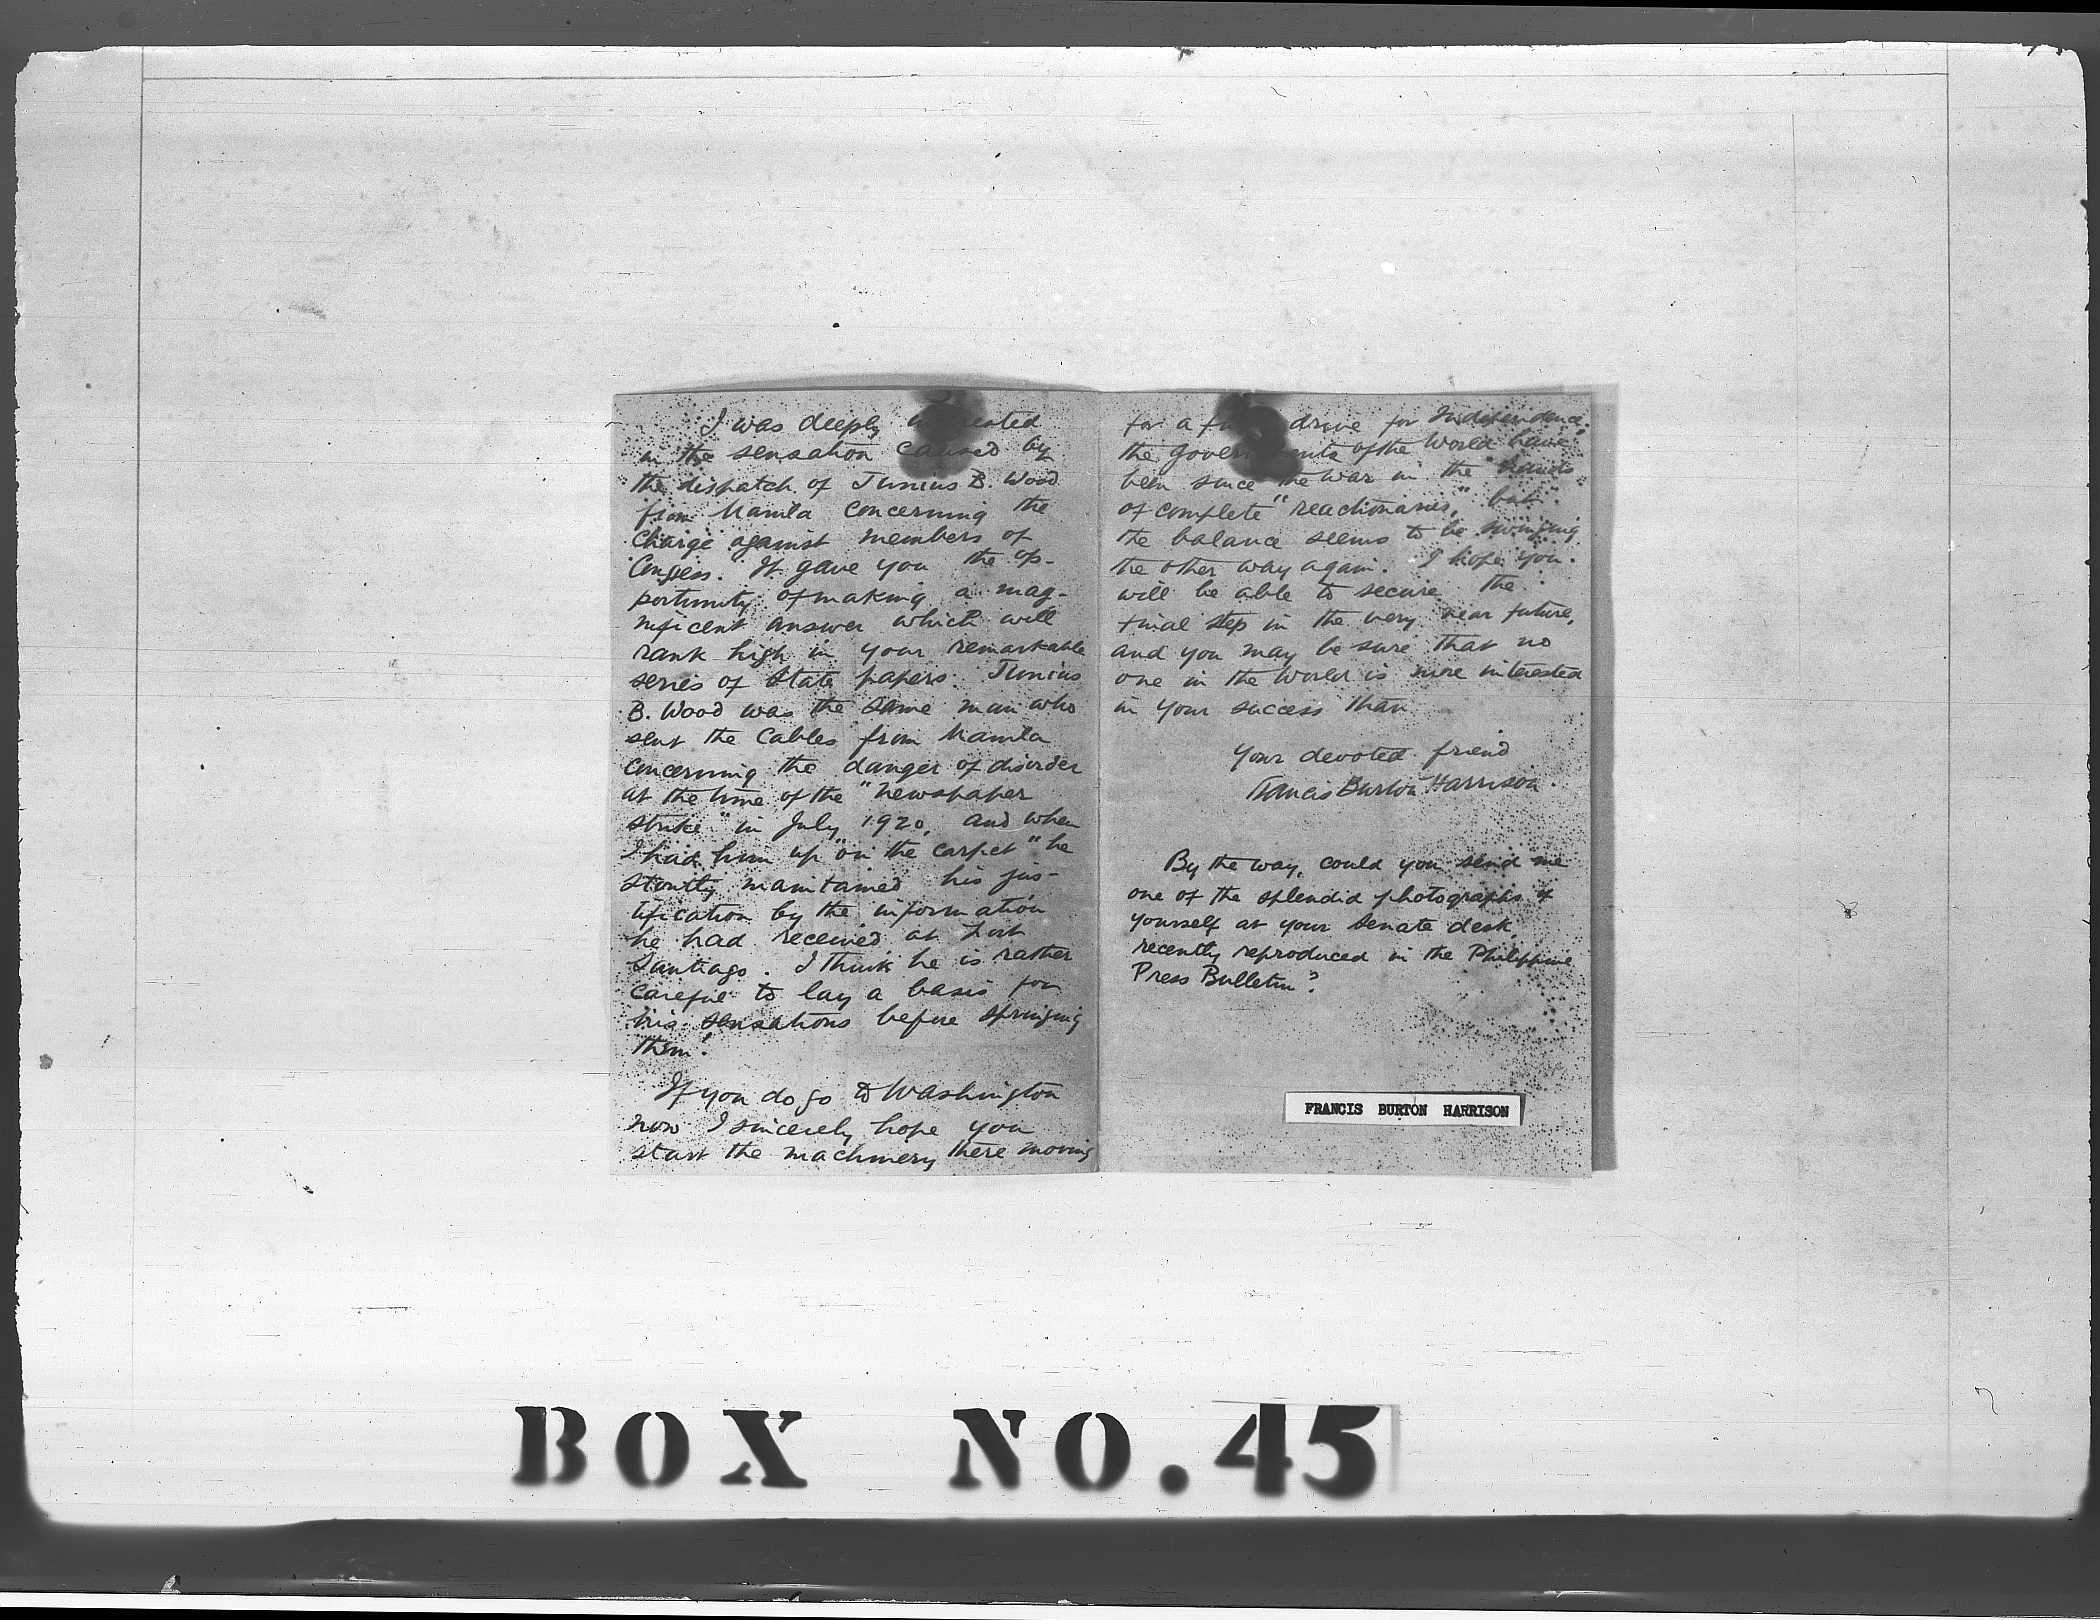 I was deeply
in the sensation caused by
the dispatch of Junius B. Wood
from Manila concerning the
charge against members of
Congress. It gave you the op-
portunity of making a mag-
nificent answer which will
rank high in your remarkable
series of State papers. Junius
B. Wood was the same man who
sent the cables from Manila
concerning the danger of disorder
at the time of the "newspaper
strike" in July 1920, and when
I had him up "on the carpet" he
stoutly maintained his jus-
tification by the information
he had received at Fort
Santiago. I think he is rather
careful to lay a basis for
his sensations before springing
them!
If you do go to Washington
now I sincerely hope you
start the machinery there moving
for a drive for Independence.
the governments of the World have
been since the war in the hands
of complete "reactionaries," but
the balance seems to be swinging
the other way again. I hope you
will be able to secure the
final step in the very near future,
and you may be sure that no
one in the world is more interested
in your success than
Your devoted friend
Francis Burton Harrison.
By the way, could you send me
one of the splendid photographs of
yourself at your Senate desk,
recently reproduced in the Philippine
Press Bulletin?
FRANCIS BURTON HARRISON
BOX NO. 45